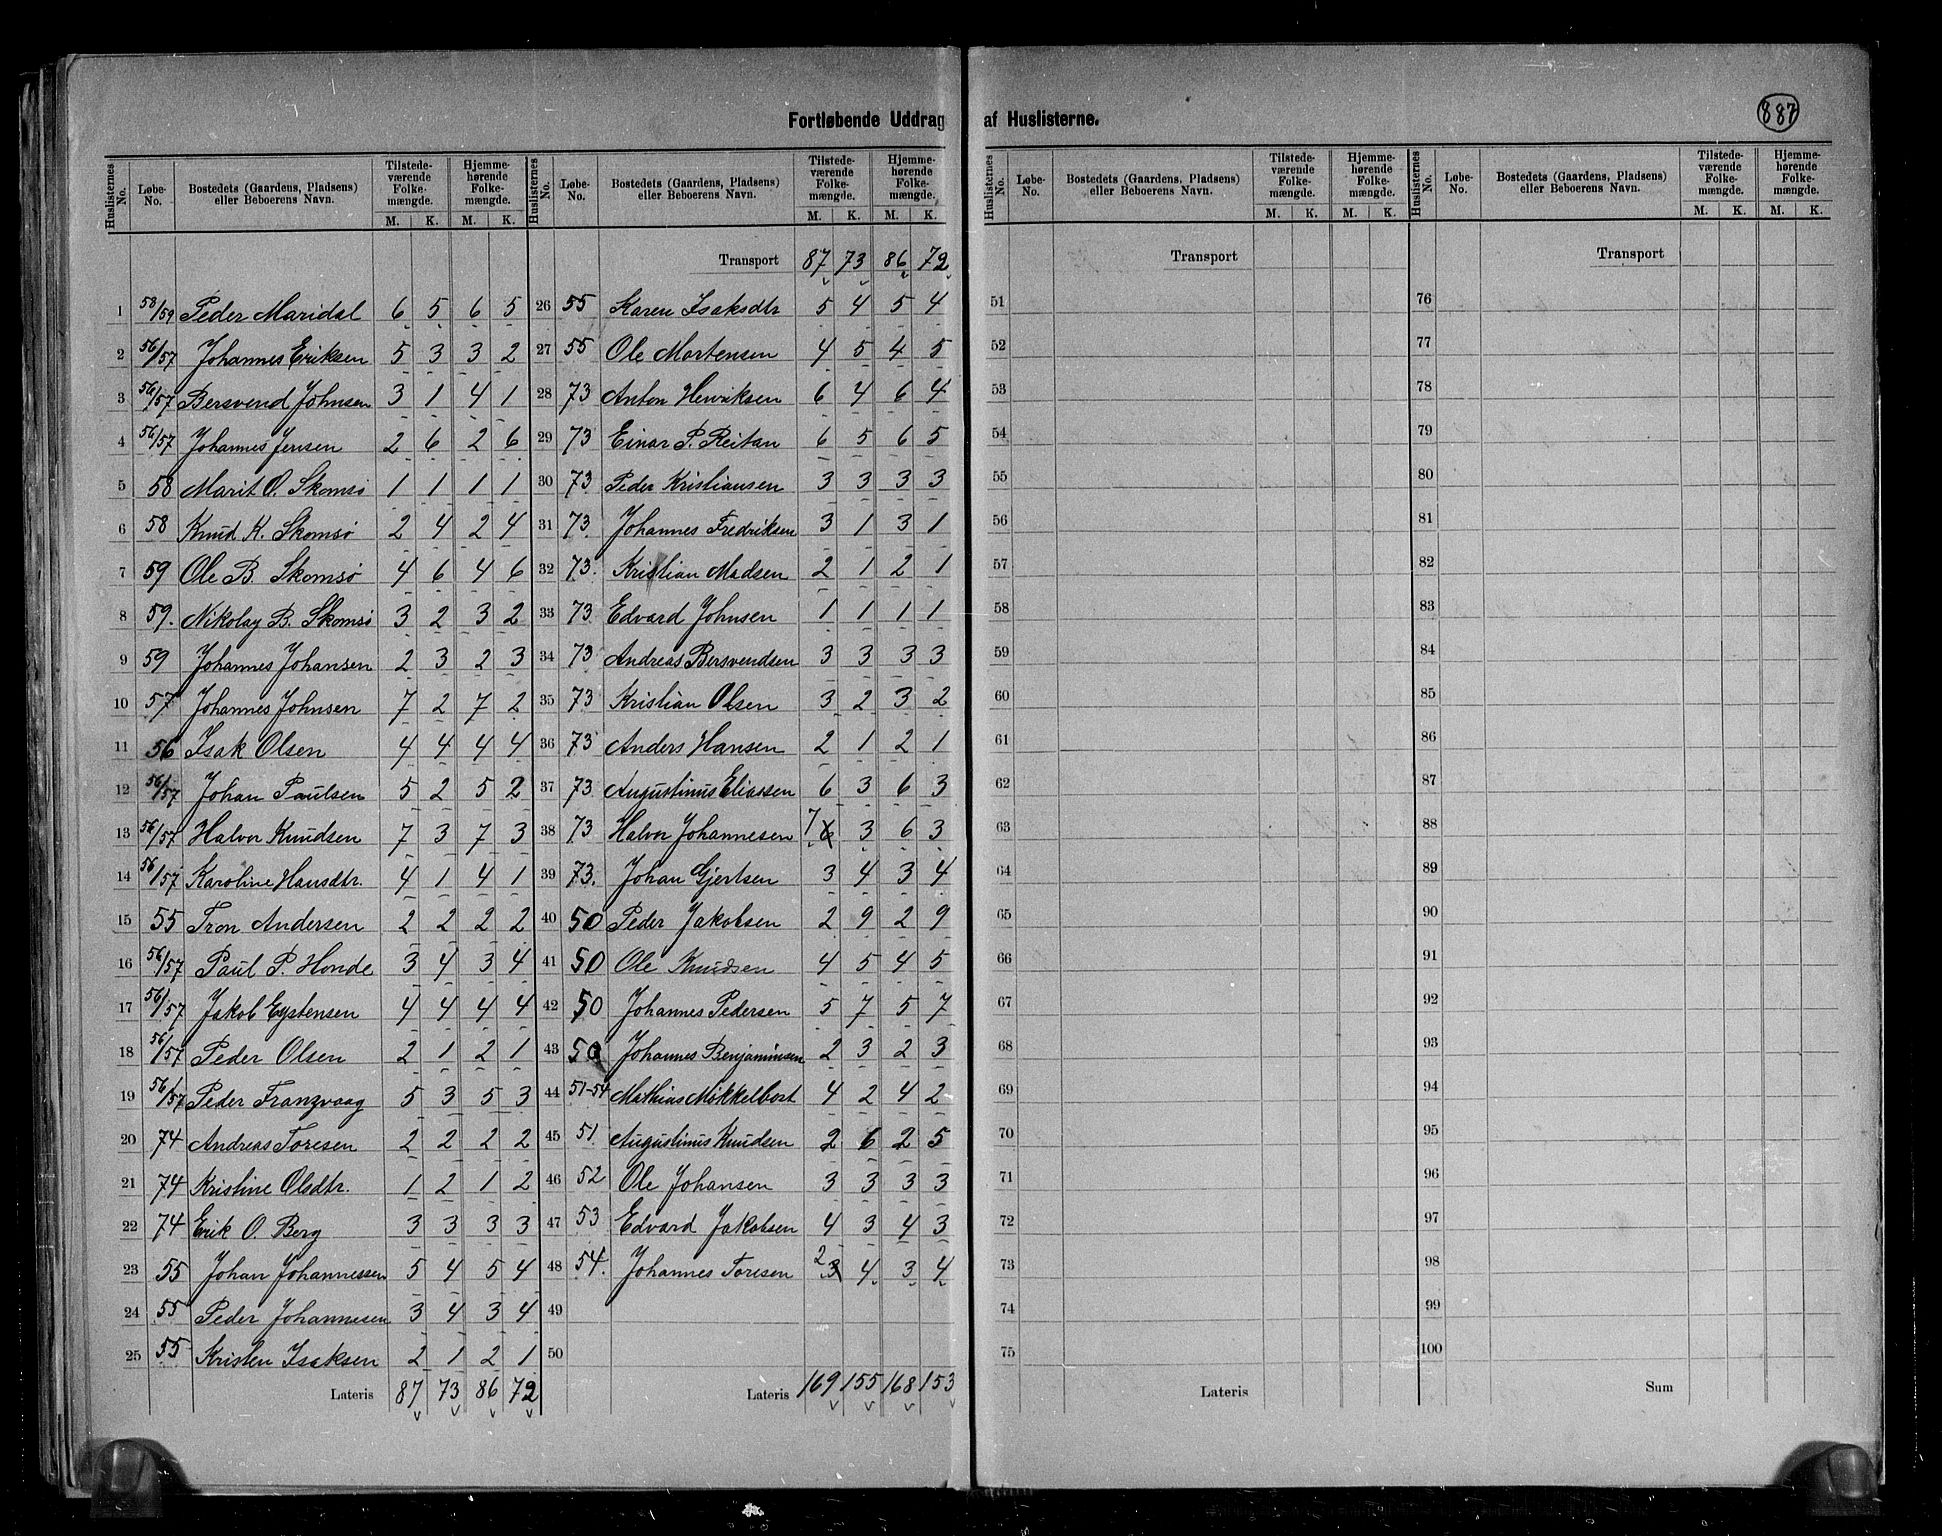 Fortløbende Uddrag af Huslisterne.
887
Huslisternes No. Løbe-No. Bostedets (Gaardens, Pladsens) eller Beboerens Navn. Tilstedeværende Folkemængde. M. K. Hjemmehørende Folkemængde. M. K.
1 58/59 Peder Maridal 6 5 6 5
2 56/57 Johannes Eriksen 5 3 3 2
3 56/57 Bersvend Johnsen 3 1 4 1
4 56/57 Johannes Jensen 2 6 2 6
5 58 Marit O. Skomsø 1 1 1 1
6 58 Knud K. Skomsø 2 4 2 4
7 59 Ole B. Skomsø 4 6 4 6
8 59. Nikolay B. Skomsø 3 2 3 2
9 59 Johannes Johansen 2 3 2 3
10 57 Johannes Johnsen 7 2 7 2
11 56 Isak Olsen 4 4 4 4
12 56/57 Johan Paulsen 5 2 5 2
13 56/57 Halvor Knudsen 7 3 7 3
14 56/57 Karoline Hansdtr. 4 1 4 1
15 55 Tron Andersen 2 2 2 2
16 56/57 Paul P. Honde 3 4 3 4
17 56/57 Jakob Eystensen 4 4 4 4
18 56/57 Peder Olsen 2 1 2 1
19 56/57 Peder Franzvaag 5 3 5 3
20 74 Andreas Toresen 2 2 2 2
21 74 Kristine Olsdtr. 1 2 1 2
22 74 Erik O. Berg 3 3 3 3
23 55 Johan Johannessen 5 4 5 4
24 55 Peder Johannesen 3 4 3 4
25 55 Kristen Isaksen 2 1 2 1
Lateris 87 73 86 72
Huslisternes No. Løbe-No. Bostedets (Gaardens, Pladsens) eller Beboerens Navn. Tilstedeværende Folkemængde. M. K. Hjemmehørende Folkemængde. M. K.
Transport 87 73 86 72
26 55 Karen Isaksdtr 5 4 5 4
27 55 Ole Mortensen 4 5 4 5
28 73 Anton Henriksen 6 4 6 4
29 73 Einar P. Reitan 6 5 6 5
30 73 Peder Kristiansen 3 3 3 3
31 73. Johannes Fredriksen 3 1 3 1
32 73. Kristian Madsen 2 1 2 1
33 73. Edvard Johnsen 1 1 1 1
34 73 Andreas Bersvendsen 3 3 3 3
35 73 Kristian Olsen 3 2 3 2
36 73 Anders Hansen 2 1 2 1
37 73 Augustinus Eliassen 6 3 6 3
38 73 Halvor Johannesen 7 6 3 6 3
39 73. Johan Gjertsen 3 4 3 4
40 50 Peder Jakobsen 2 9 2 9
41 50 Ole Knudsen 4 5 4 5
42 50 Johannes Pedersen 5 7 5 7
43 50 Johannes Benjaminsen 2 3 2 3
44 51-54 Mathias Møkkelbost 4 2 4 2
45 51. Augustinus Knudsen 2 6 2 5
46 52 Ole Johansen 3 3 3 3
47 53 Edvard Jakobsen 4 3 4 3
48 54. Johannes Toresen 2 3 4 3 4
49
50
Lateris 169 155 168 153
Huslisternes No. Løbe-No. Bostedets (Gaardens, Pladsens) eller Beboerens Navn. Tilstedeværende Folkemængde. M. K. Hjemmehørende Folkemængde. M. K.
Transport
51
52
53
54
55
56
57
58
59
60
61
62
63
64
65
66
67
68
69
70
71
72
73
74
75
Lateris
Huslisternes No. Løbe-No. Bostedets (Gaardens, Pladsens) eller Beboerens Navn. Tilstedeværende Folkemængde. M. K. Hjemmehørende Folkemængde. M. K.
Transport
76
77
78
79
80
81
82
83
84
85
86
87
88
89
90
91
92
93
94
95
96
97
98
99
100
Sum